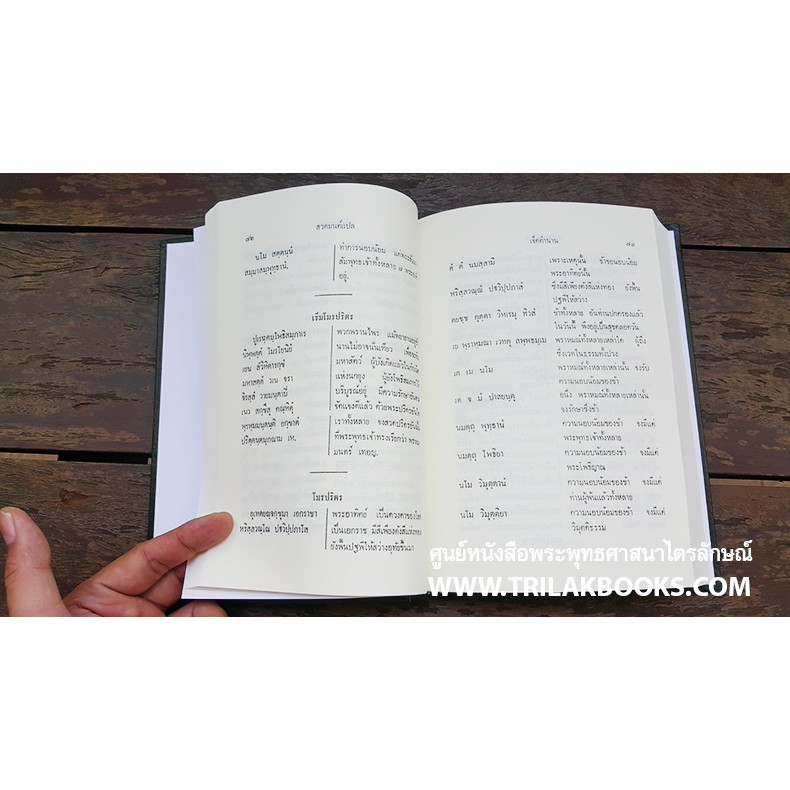 ๗๒ สวดมนต์แปล
นโม สตฺตนฺนํ
สมฺมาสมฺพุทฺธานํ.
ทำการนอบน้อม แด่พระสัมมา
สัมพุทธเจ้าทั้งหลาย ๗ พระองค์
อยู่.
เริ่มโมรปริตร
ปูเรนฺตมฺโพธิสมฺภาเร
นิพฺพตฺตํ โมรโยนิยํ
เยน สํวิหิตารกฺขํ
มหาสตฺตํ วเน จรา
จิรสฺสํ วายมนฺตาปิ
เนว สกฺขึสุ คณฺหิตุํ
พฺรหฺมมนฺตนฺติ อกฺขาตํ
ปริตฺตนฺตมฺภณาม เห.
พวกพรานไพร แม้พยายามอยู่
นานไม่อาจนั่นเทียว เพื่อจะจับ
มหาสัตว์ ผู้บังเกิดแล้วในกำเนิด
แห่งนกยูง ผู้ยังโพธิสมภารให้
บริบูรณ์อยู่ มีความรักษาอัน
จัดแจงดีแล้ว ด้วยพระปริตรอันใด
เราทั้งหลาย จงสวดปริตรอันนั้น
ที่พระพุทธเจ้าทรงเรียกว่า พรหม
มนตร์ เทอญ.
โมรปริตร
อุเทตยญฺจกฺขุมา เอกราชา
หริสฺสวณฺโณ ปฐวิปฺปภาโส
พระอาทิตย์ เป็นดวงตาของโลก
เป็นเอกราช มีสีเพียงดังสีแห่งทอง
ยังพื้นปฐพีให้สว่างอุทัยขึ้นมา
เจ็ดตำนาน ๗๓
ตํ ตํ นมสฺสามิ
หริสฺสวณฺณํ ปฐวิปฺปภาสํ
ตยชฺช คุตฺตา วิหเรมุ ทิวสํ
เย พฺราหฺมณา เวทคู สพฺพธมฺเม
เต เม นโม
เต จ มํ ปาลยนฺตุ
นมตฺถุ พุทฺธานํ
นมตฺถุ โพธิยา
นโม วิมุตฺตานํ
นโม วิมุตฺติยา
เพราะเหตุนั้น ข้าขอนอบน้อม
พระอาทิตย์นั้น
ซึ่งมีสีเพียงดังสีแห่งทอง ยังพื้น
ปฐพีให้สว่าง
ข้าทั้งหลาย อันท่านปกครองแล้ว
ในวันนี้ พึงอยู่เป็นสุขตลอดวัน
พราหมณ์ทั้งหลายเหล่าใด ผู้ถึง
ซึ่งเวทในธรรมทั้งปวง
พราหมณ์ทั้งหลายเหล่านั้น จงรับ
ความนอบน้อมของข้า
อนึ่ง พราหมณ์ทั้งหลายเหล่านั้น
จงรักษาซึ่งข้า
ความนอบน้อมของข้า จงมีแด่
พระพุทธเจ้าทั้งหลาย
ความนอบน้อมของข้า จงมีแด่
พระโพธิญาณ
ความนอบน้อมของข้า จงมีแด่
ท่านผู้พ้นแล้วทั้งหลาย
ความนอบน้อมของข้า จงมีแด่
วิมุตติธรรม
ศูนย์หนังสือพระพุทธศาสนาไตรลักษณ์
WWW.TRILAKBOOKS.COM